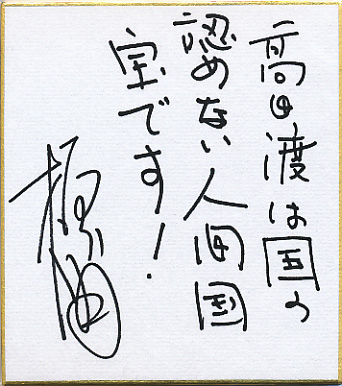 高田渡は国の
認めない人間国
宝です！